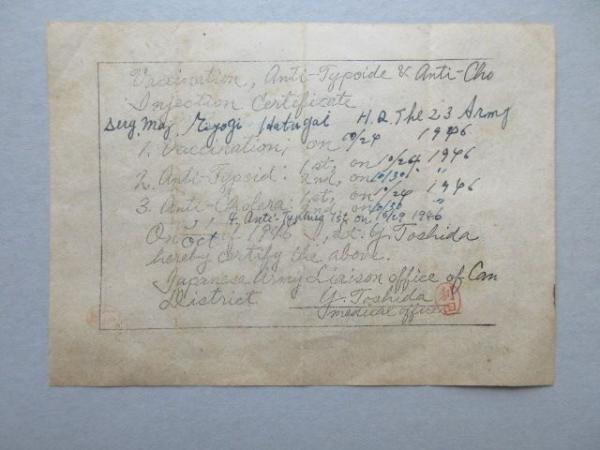 Vaccination, Anti-Typoide & Anti-Cho
Injection Certificate
Serg. Maj. Miyogi Hatugai H.Q The 23 Army
1. Vaccination, on 10/24 1946
2. Anti-Typoid: 1st, on 10/24 1946
2nd, on 10/30 "
3. Anti-Cholera: 1st, on 10/24 1946
2nd on 10/30 "
4. Anti-Typhus 1st on 10/29 1946
On Oct. 1946, Lt. Y. Toshida
hereby certify the above.
Japanese Army Liaison office of Can
District Y. Toshida
medical officer